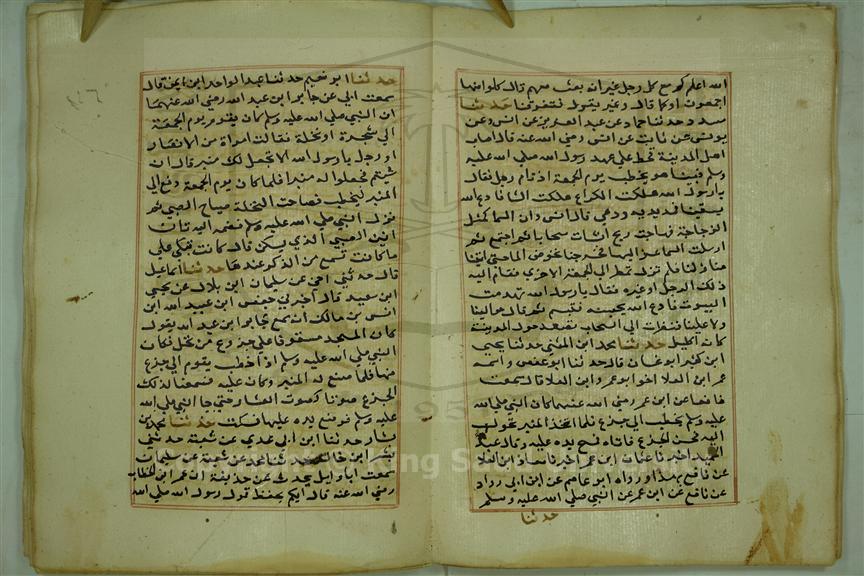 الله اعلم كم مع كل رجل غير انه بعث معهم قال كلوا منها
اجمعون او كما قال وغيره يقول فتفرقنا حدثنا
مسدد حدثنا حماد عن عبد العزيز عن انس وعن
يونس عن ثابت عن انس رضي الله عنه قال اصاب
اهل المدينة قحط على عهد رسول الله صلى الله عليه
وسلم فبينا هو يخطب يوم الجمعة اذ قام رجل فقال
يا رسول الله هلكت الكراع هلكت الشا فادع الله
يسقينا فمد يديه ودعى قال انس وان السما كمثل
الزجاجة فهاجت ريح انشات سحابا ثم اجتمع ثم
ارسلت السما عزاليها فخرجنا نخوض الما حتى اتينا
منازلنا فلم نزل نمطر الى الجمعة الاخرى فقام اليه
ذلك الرجل او غيره فقال يا رسول الله تهدمت
البيوت فادع الله يحبسه فتبسم ثم قال حوالينا
ولا علينا فنظرت الى السحاب تصدع حول المدينة
كانه اكليل حدثنا محمد ابن المثنى حدثنا يحيى
ابن كثير ابو غسان قال حدثنا ابو حفص واسمه
عمر ابن العلا اخو ابو عمرو ابن العلا قال سمعت
نافعا عن ابن عمر رضي الله عنهما كان النبي صلى الله
عليه وسلم يخطب الى جذع فلما اتخذ المنبر تحول
اليه فحن الجذع فاتاه فمسح يده عليه وقال عبد
الحميد اخبرنا عثمان ابن عمر اخبرنا معاذ ابن العلا
عن نافع بهذا ورواه ابو عاصم عن ابن ابي رواد
عن نافع عن ابن عمر عن النبي صلى الله عليه وسلم
حدثنا
حدثنا ابو نعيم حدثنا عبد الواحد ابن ايمن قال
سمعت ابي عن جابر ابن عبد الله رضي الله عنهما
ان النبي صلى الله عليه وسلم كان يقوم يوم الجمعة
الى شجرة او نخلة فقالت امراة من الانصار
او رجل يا رسول الله الا نجعل لك منبر قال ان
شيتم فجعلوا له منبرا فلما كان يوم الجمعة دفع الى
المنبر ليخطب فصاحت النخلة صياح الصبي ثم
نزل النبي صلى الله عليه وسلم فضمه اليه تان
انين الصبي الذي يسكن قال كانت تبكي على
ما كانت تسمع من الذكر عندها حدثنا اسماعيل
قال حدثني اخي عن سليمان ابن بلال عن يحيى
ابن سعيد قال اخبرني حفص ابن عبيد الله ابن
انس بن مالك انه سمع جابر ابن عبد الله يقول
كان المسجد مسقوفا على جذوع من نخل فكان
النبي صلى الله عليه وسلم اذا خطب يقوم الى جذع
منها فلما صنع له المنبر وكان عليه فسمعنا لذلك
الجذع صوتا كصوت العشار حتى جا النبي صلى الله
عليه وسلم فوضع يده عليها فسكنت حدثنا محمد بن
بشار حدثنا ابن ابي عدي عن شعبة حدثني
بشر ابن خالد حدثنا محمد عن شعبة عن سليمان
سمعت ابا وايل يحدث عن حذيفة ان عمر ابن الخطاب
رضي الله عنه قال ايكم يحفظ قول رسول الله صلى الله